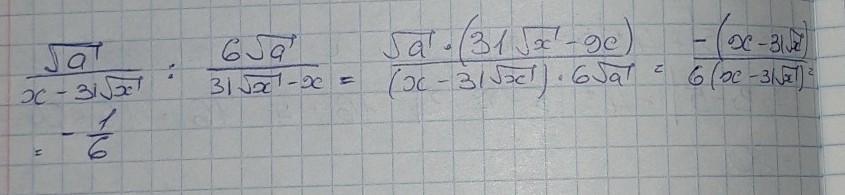 √a / (x - 31√x) : 6√a / (31√x - x) = √a · (31√x - x) / ((x - 31√x) · 6√a) = -(x - 31√x) / 6(x - 31√x) =
= - 1/6